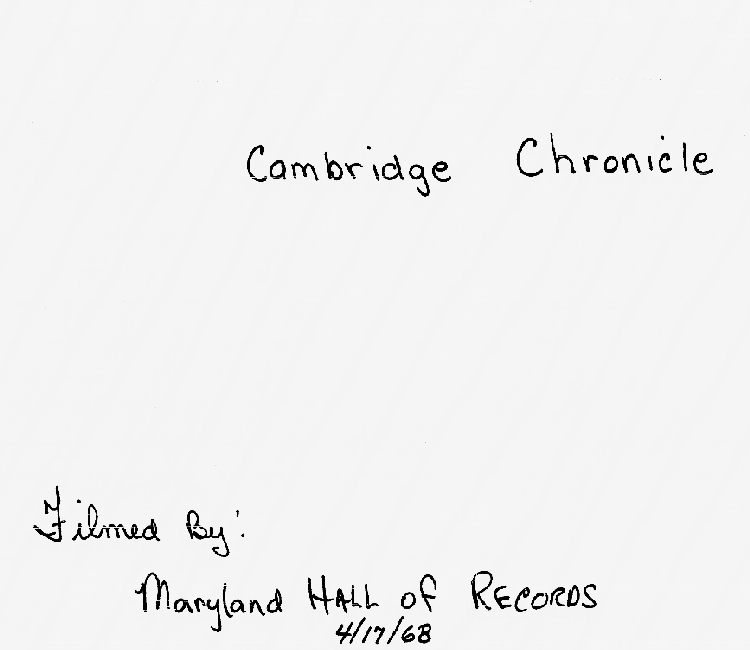 Cambridge Chronicle
Filmed By:
Maryland HALL of RECORDS
4/17/68